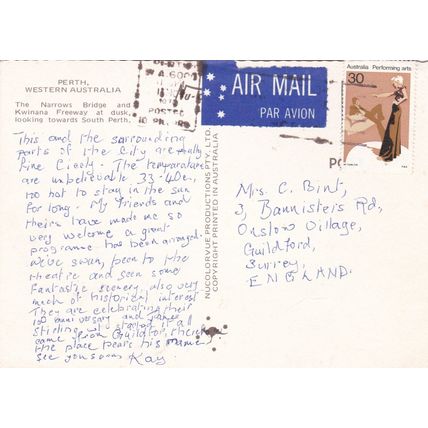 PERTH,
WESTERN AUSTRALIA
The Narrows Bridge and
Kwinana Freeway at dusk,
looking towards South Perth.
This and the surrounding
parts of the City are really
fine Cicely. The temperature
are unbelievable 33-40c,
too hot to stay in the sun
for long. My friends and
theirs have made me so
very welcome a great
programme has been arranged.
We've swam, been to the
theatre and seen some
fantastic scenery, also very
much of historical interest
They are celebrating their
150 anniversary and James
Stirling who started it all
came from Guildford, therefore
the place bears his name,
see you soon Kay.
NUCOLORVUE PRODUCTIONS PTY. LTD.
COPYRIGHT PRINTED IN AUSTRALIA
AIR MAIL
PAR AVION
Australia Performing arts
30
Mrs. C. Bint,
3, Bannisters Rd,
Onslow Village,
Guildford,
Surrey,
ENGLAND.